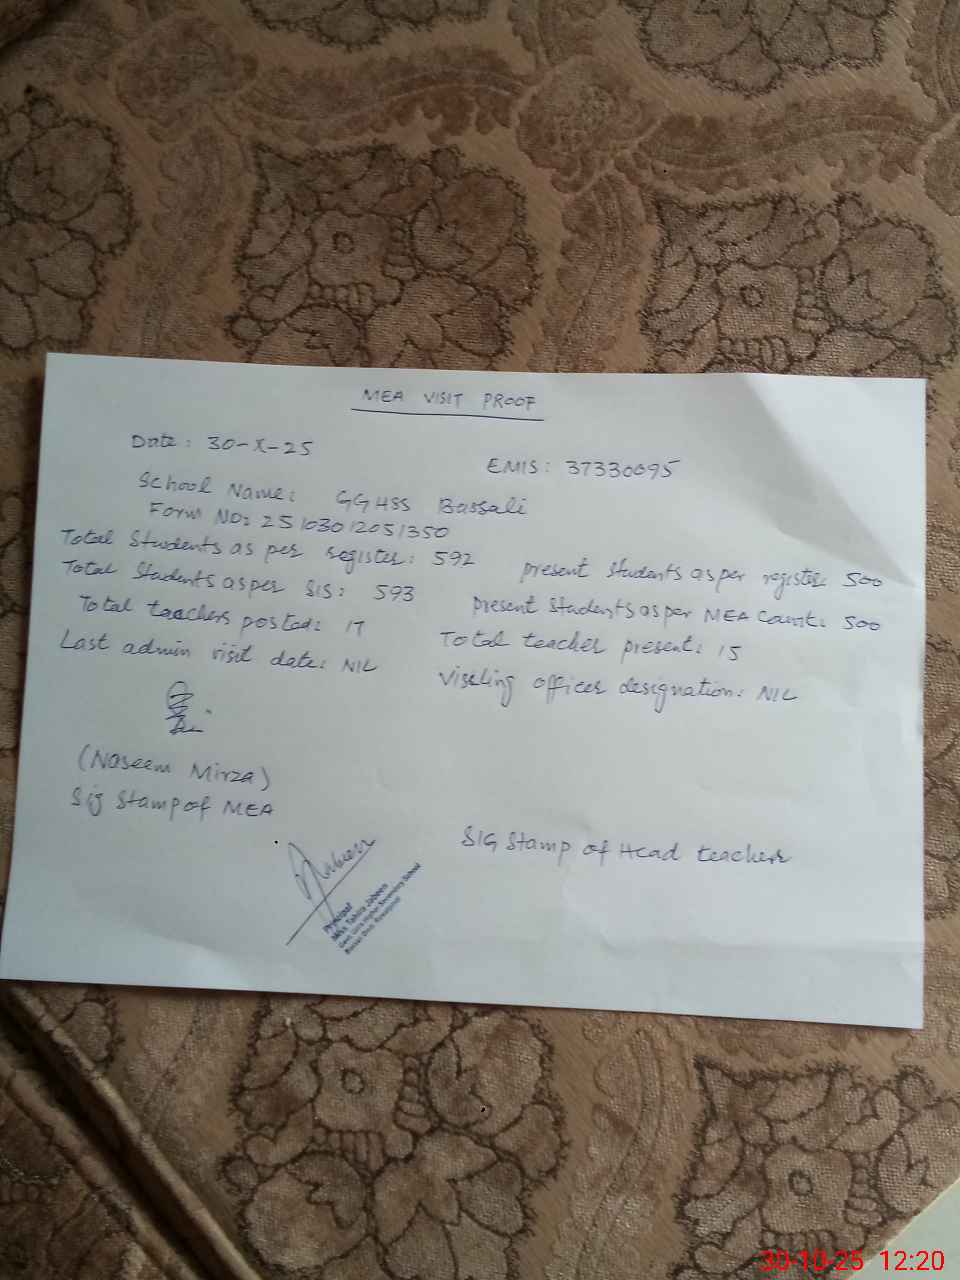 MEA VISIT PROOF
Date: 30-X-25
EMIS: 37330095
School Name: GGHSS Bassali
Form NO: 25103012051350
Total Students as per register: 592
present students as per register: 500
Total Students as per SIS: 593
present students as per MEA Count: 500
Total teachers posted: 17
Total teacher present: 15
Last admin visit date: NIL
Visiting officer designation: NIL
(Naseem Mirza)
Sig Stamp of MEA
SIG Stamp of Head teacher
Principal
Miss Tahira Jabeen
Govt. Girls Higher Secondary School
30-10-25 12:20